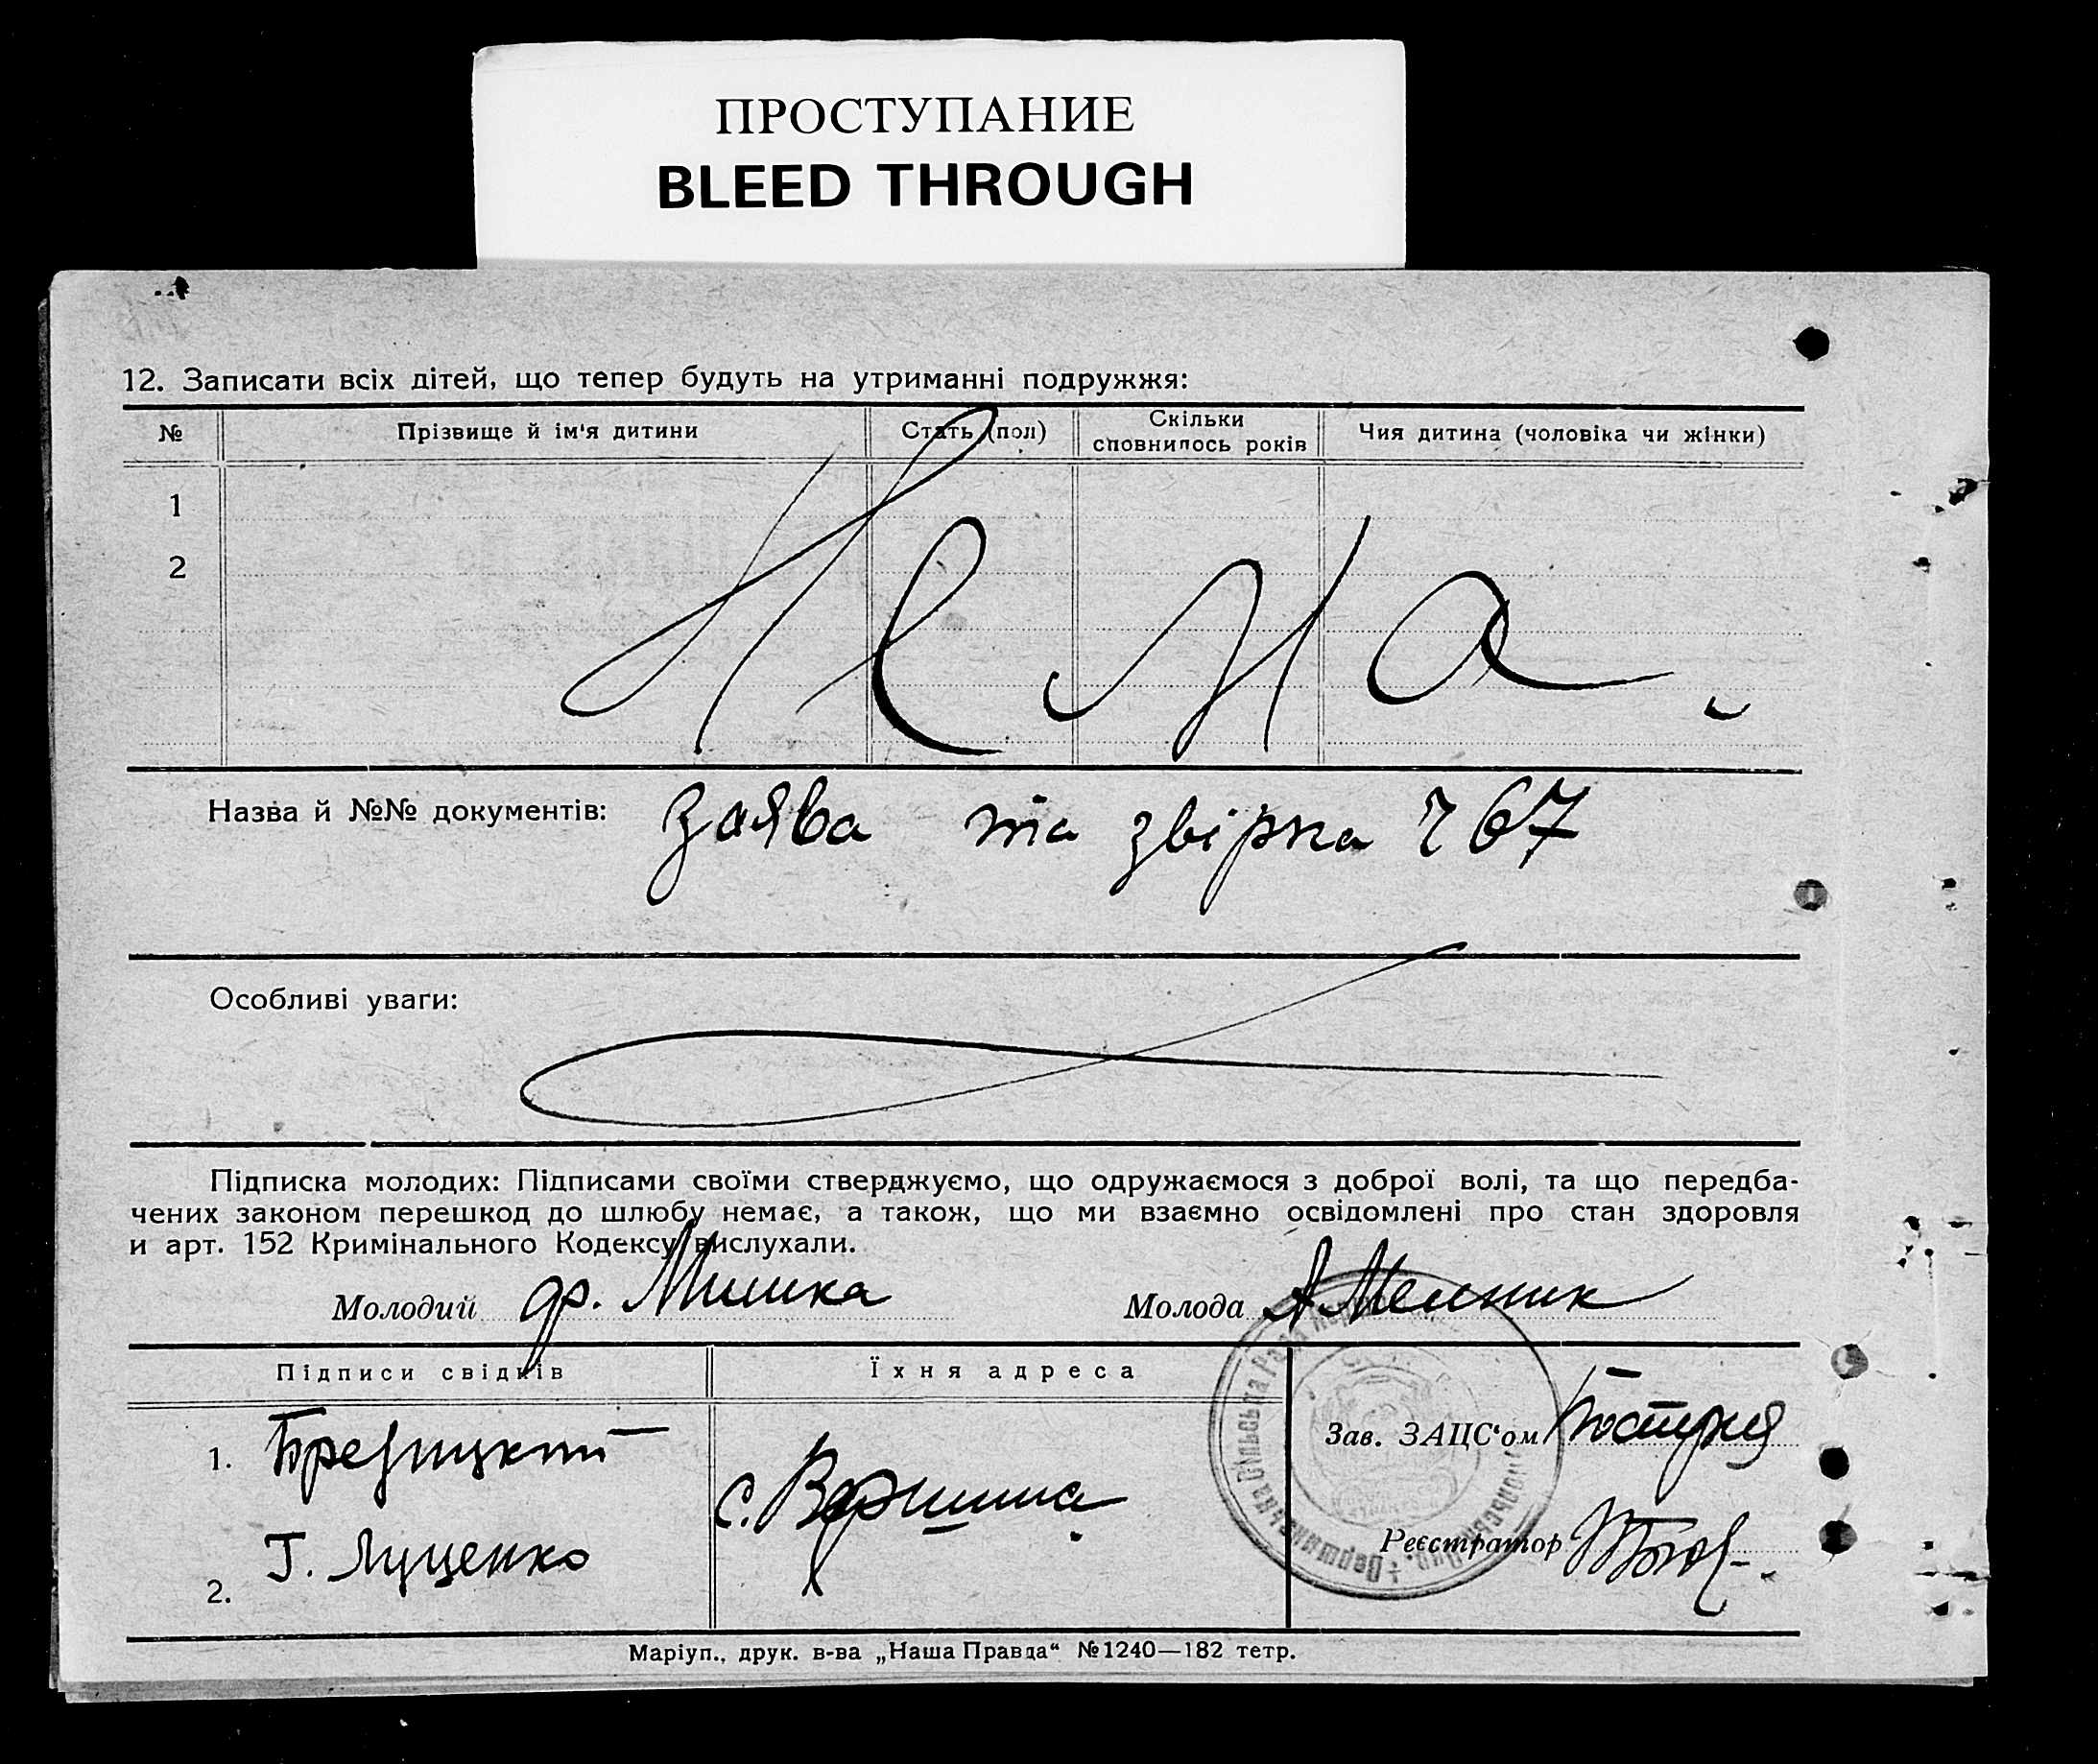 ПРОСТУПАНИЕ
BLEED THROUGH
12. Записати всіх дітей, що тепер будуть на утриманні подружжя:
№ Прізвище й ім'я дитини Стать (пол) Скільки сповнилось років Чия дитина (чоловіка чи жінки)
1
2
Нема.
Назва й №№ документів: Заява та звірка 767
Особливі уваги:
Підписка молодих: Підписами своїми стверджуємо, що одружаємося з доброї волі, та що передба-
чених законом перешкод до шлюбу немає, а також, що ми взаємно освідомлені про стан здоровля
и арт. 152 Кримінального Кодексу вислухали.
Молодий Молода А Мельник
Підписи свідків Їхня адреса
1. Зав. ЗАЦС'ом
с. Вершина
2. Г. Луценко Реєстратор
Маріуп., друк. в-ва „Наша Правда" №1240—182 тетр.